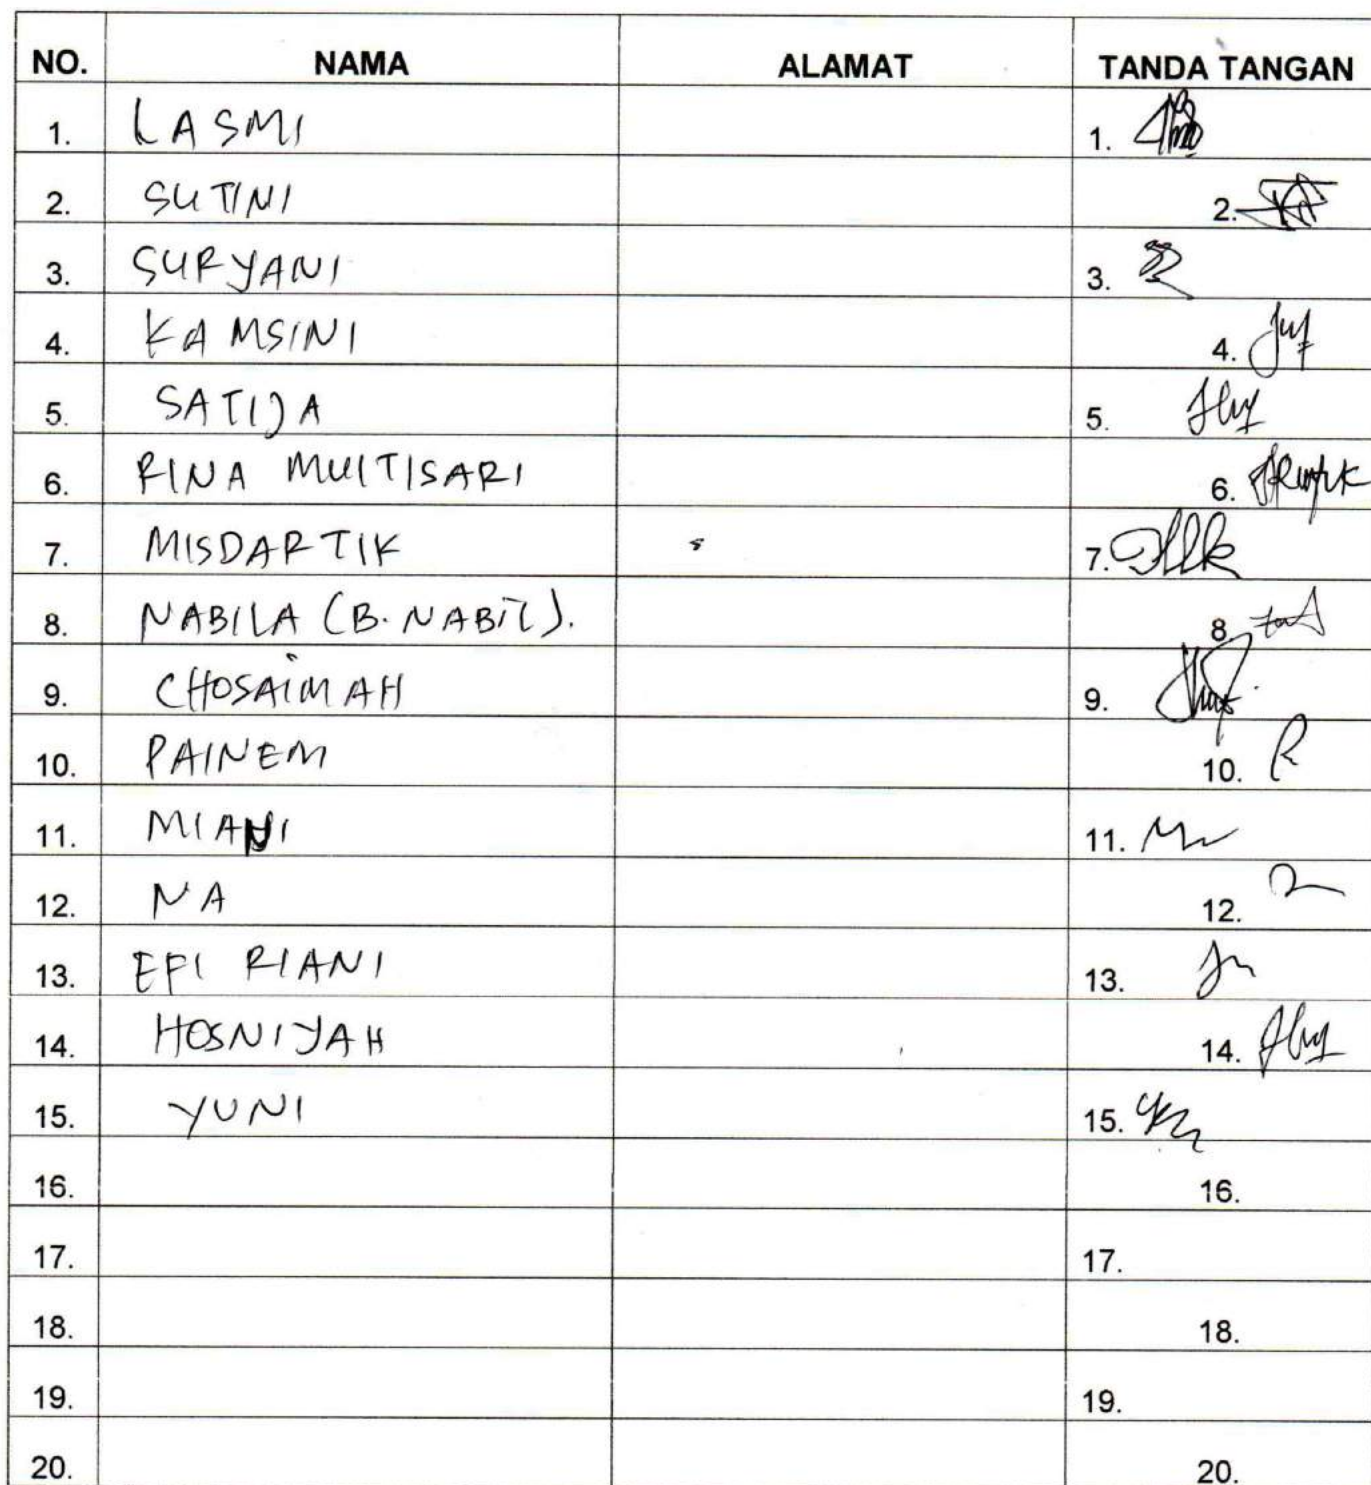 NO. NAMA ALAMAT TANDA TANGAN
1. LASMI 1.
2. SUTINI 2.
3. SURYANI 3.
4. KAMSINI 4.
5. SATIJA 5.
6. RINA MULTISARI 6.
7. MISDARTIK 7.
8. NABILA (B. NABIL). 8.
9. CHOSAIMAH 9.
10. PAINEM 10.
11. MIANI 11.
12. NA 12.
13. EFI RIANI 13.
14. HOSNIYAH 14.
15. YUNI 15.
16. 16.
17. 17.
18. 18.
19. 19.
20. 20.